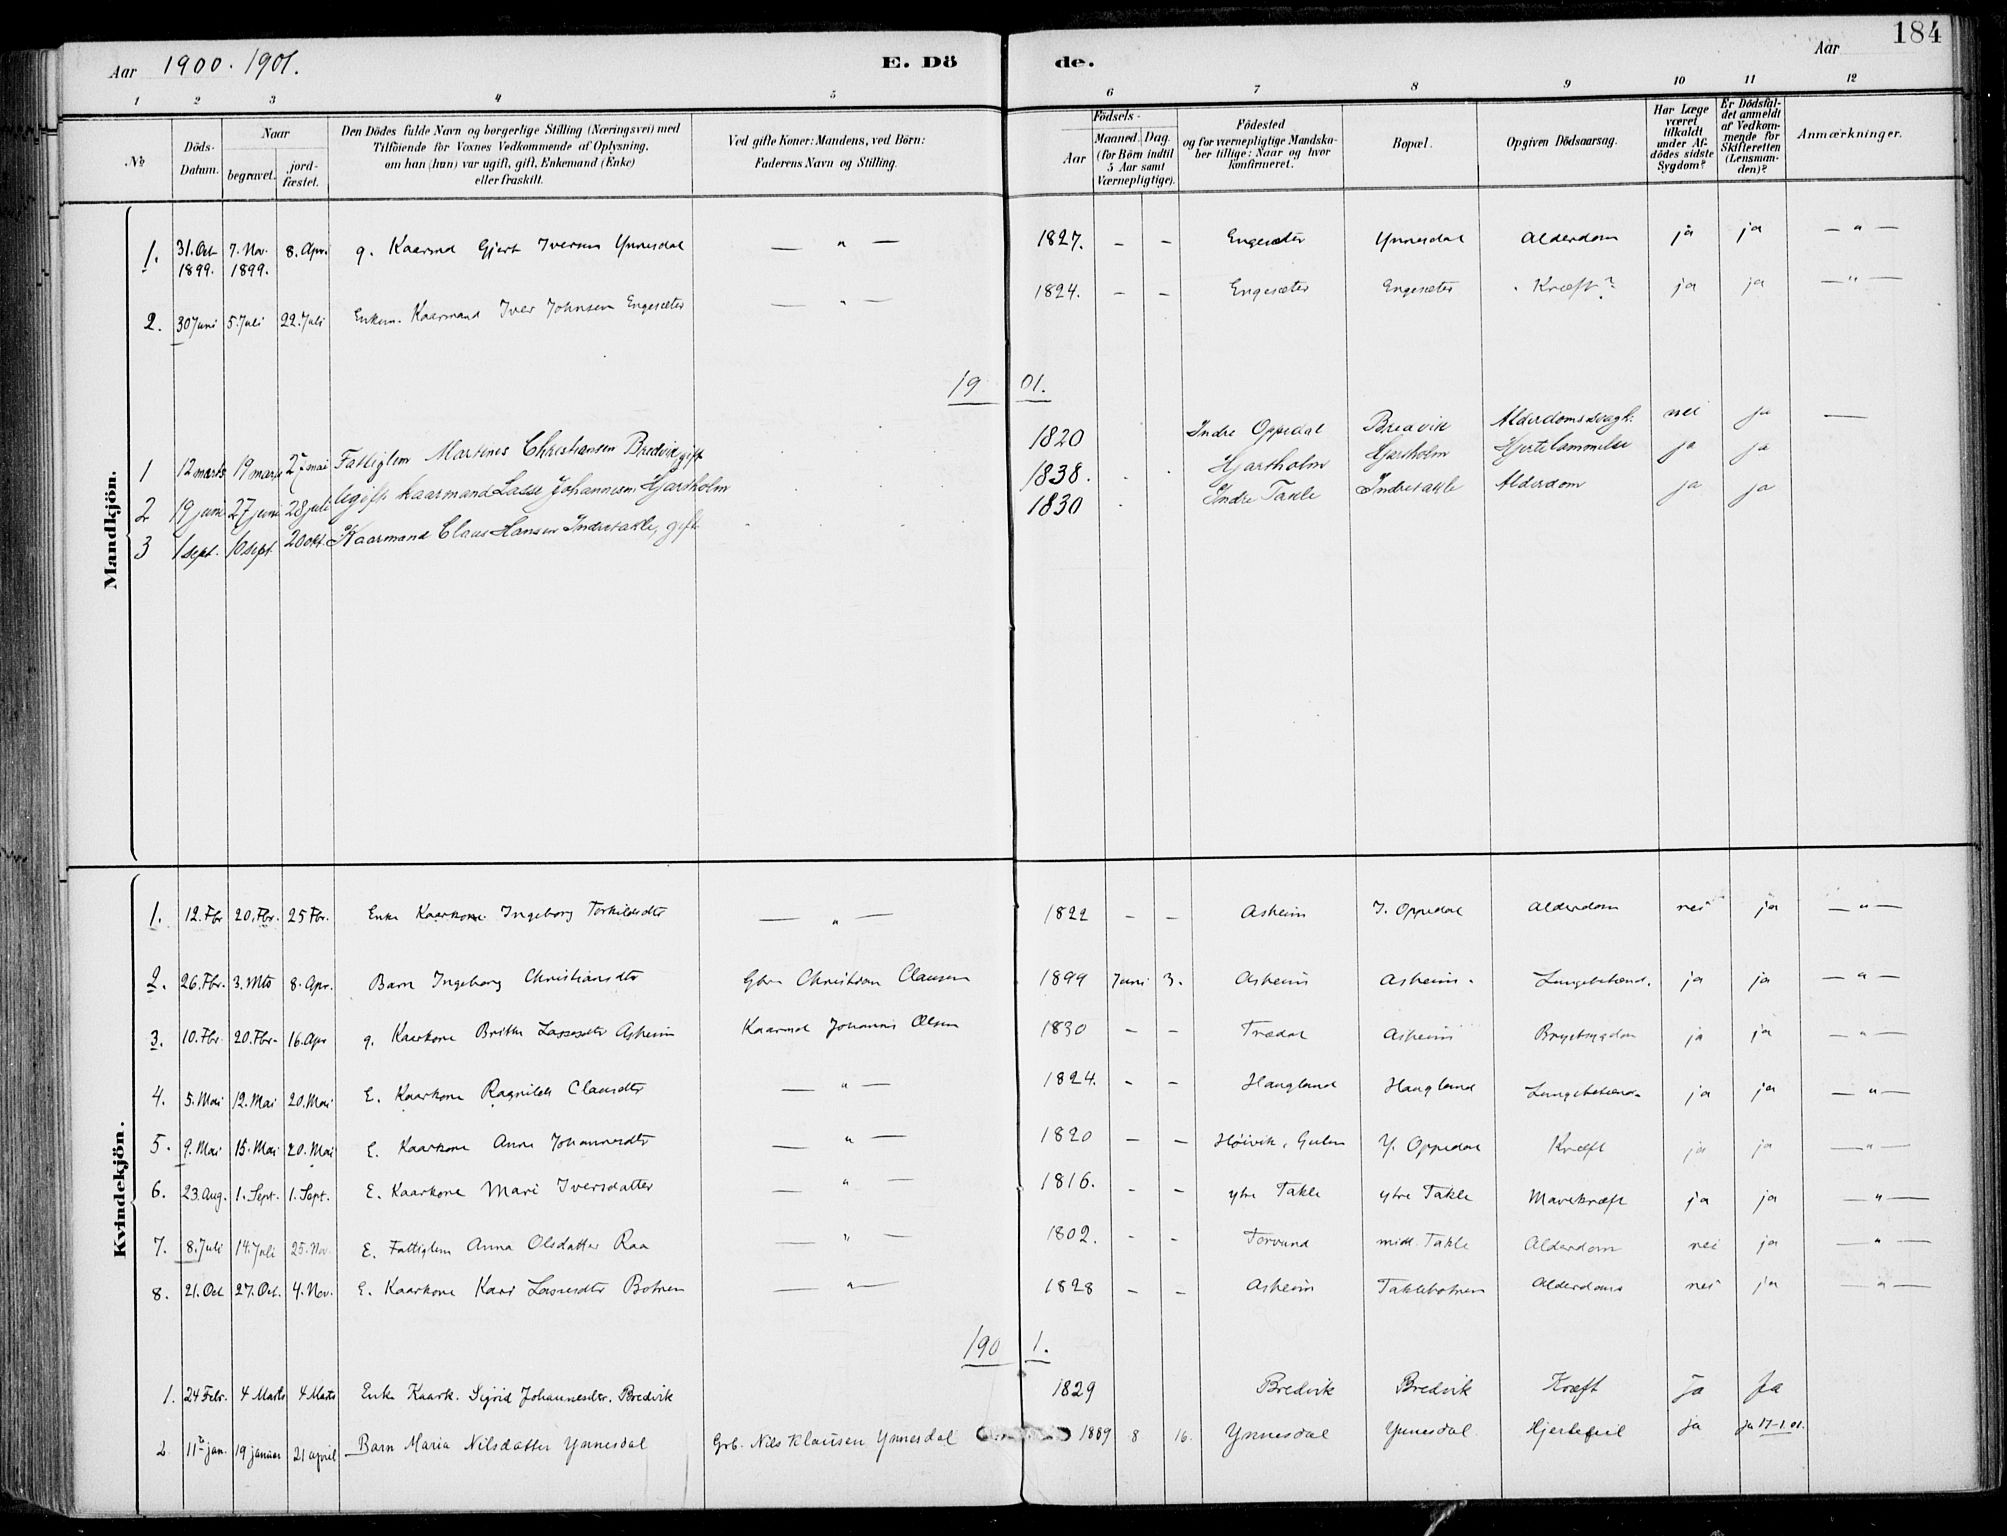 184
Aar 1900. 1901. E. Dö de. Aar
1 2 3 4 5 6 7 8 9 10 11 12
No
Döds-Datum.
Naar
begravet.
jord-fæstet.
Den Dödes fulde Navn og borgerlige Stilling (Næringsvei) med
Tilföiende for Voxnes Vedkommende af Oplysning,
om han (hun) var ugift, gift, Enkemand (Enke)
eller fraskilt.
Ved gifte Koner: Mandens, ved Börn:
Faderens Navn og Stilling.
Födsels-
Aar
Maaned. Dag.
(for Börn indtil
5 Aar samt
Værnepligtige).
Födested
og for værnepligtige Mandska-
ber tillige: Naar og hvor
konfirmeret.
Bopæl.
Opgiven Dödsaarsag.
Har Læge
været
tilkaldt
under Af-
dödes sidste
Sygdom?
Er Dödsfal-
det anmeldt
af Vedkom-
mende for
Skifteretten
(Lensman-
den)?
Anmærkninger.
Mandkjön.
1. 31. Oct 1899. 7. Nov. 1899. 8. Apri g. Kaarmd Gjert Iversen Ynnesdal — " — 1827. – – Engesæter Ynnesdal Alderdom ja ja — " —
2. 30 Juni 5. Juli 22. Juli Enkem. Kaarmand Iver Johnsen Engesæter — " — 1824. – – Engesæter Engesæter Kræft? ja ja — " —
1901.
1 12 marts 19 marts 27 mai Fattiglem Martines Christiansen Bredvik gift 1820 Indre Oppedal Bredvik Alderdomssvagh. nei ja —
2 19 juni 27 juni 28 juli Kaarmand Lasse Johannesen Hjartholm 1838. Hjartholm Hjartholm Hjertelammelse ja ja
3 1 sept. 10 sept. 20 okt. Kaarmand Claus Hansen Indretakle, gift 1830 Indre Takle Indretakle Alderdom ja ja
Kvindekjön.
1. 12. Fbr 20. Fbr. 25 Fbr. Enke Kaarkone Ingeborg Torkildsdtr — " — 1822 – – Asheim I. Oppedal Alderdom nei ja — " —
2. 26. Fbr. 3. Mts 8. Apr. Barn Ingeborg Christiansdtr Gbr Christian Clausen 1899 Juni 3. Asheim Asheim. Lungebetænd. ja ja — " —
3. 10. Fbr. 20. Fbr. 16. Apr g. Kaarkone Britha Lassesdtr Asheim Kaarmd Johannes Olsen 1830 – – Trædal Asheim Brystsygdom ja ja — " —
4. 5. Mai 12. Mai 20. Mai E. Kaarkone Ragnilde Clausdtr — " — 1824. – – Haugland Haugland Lungebetænd. ja ja — " —
5. 9. Mai 15. Mai 20. Mai E. Kaarkone Anna Johannesdtr — " — 1820 – – Høivik, Gulen Y. Oppedal Kræft ja ja — " —
6. 23. Aug. 1. Sept. 1. Sept. E. Kaarkone Mari Iversdatter — " — 1816. – – ytre Takle ytre Takle Mavekræft ja ja — " —
7. 8. Juli 14. Juli 25. Nov. E. Fattiglem Anna Olsdatter Raa — " — 1802. – – Torvund midt. Takle Alderdom nei ja — " —
8. 21. Oct 27. Oct. 4. Nov. E. Kaarkone Kari Lassesdtr Botnen — " — 1828 – – Asheim Taklebotnen Alderdoms nei ja — " —
1901.
1. 24 Febr. 4 Marts 4 Marts Enke Kaark. Sigrid Johannesdtr. Bredvik 1829 Bredvik Bredvik Kræft Ja Ja
2 11te jan. 19 januar 21 april Barn Maria Nilsdatter Ynnesdal Grb. Nils Klausen Ynnesdal 1889 8 16. Ynnesdal Ynnesdal Hjertefeil ja ja 17-1.01.